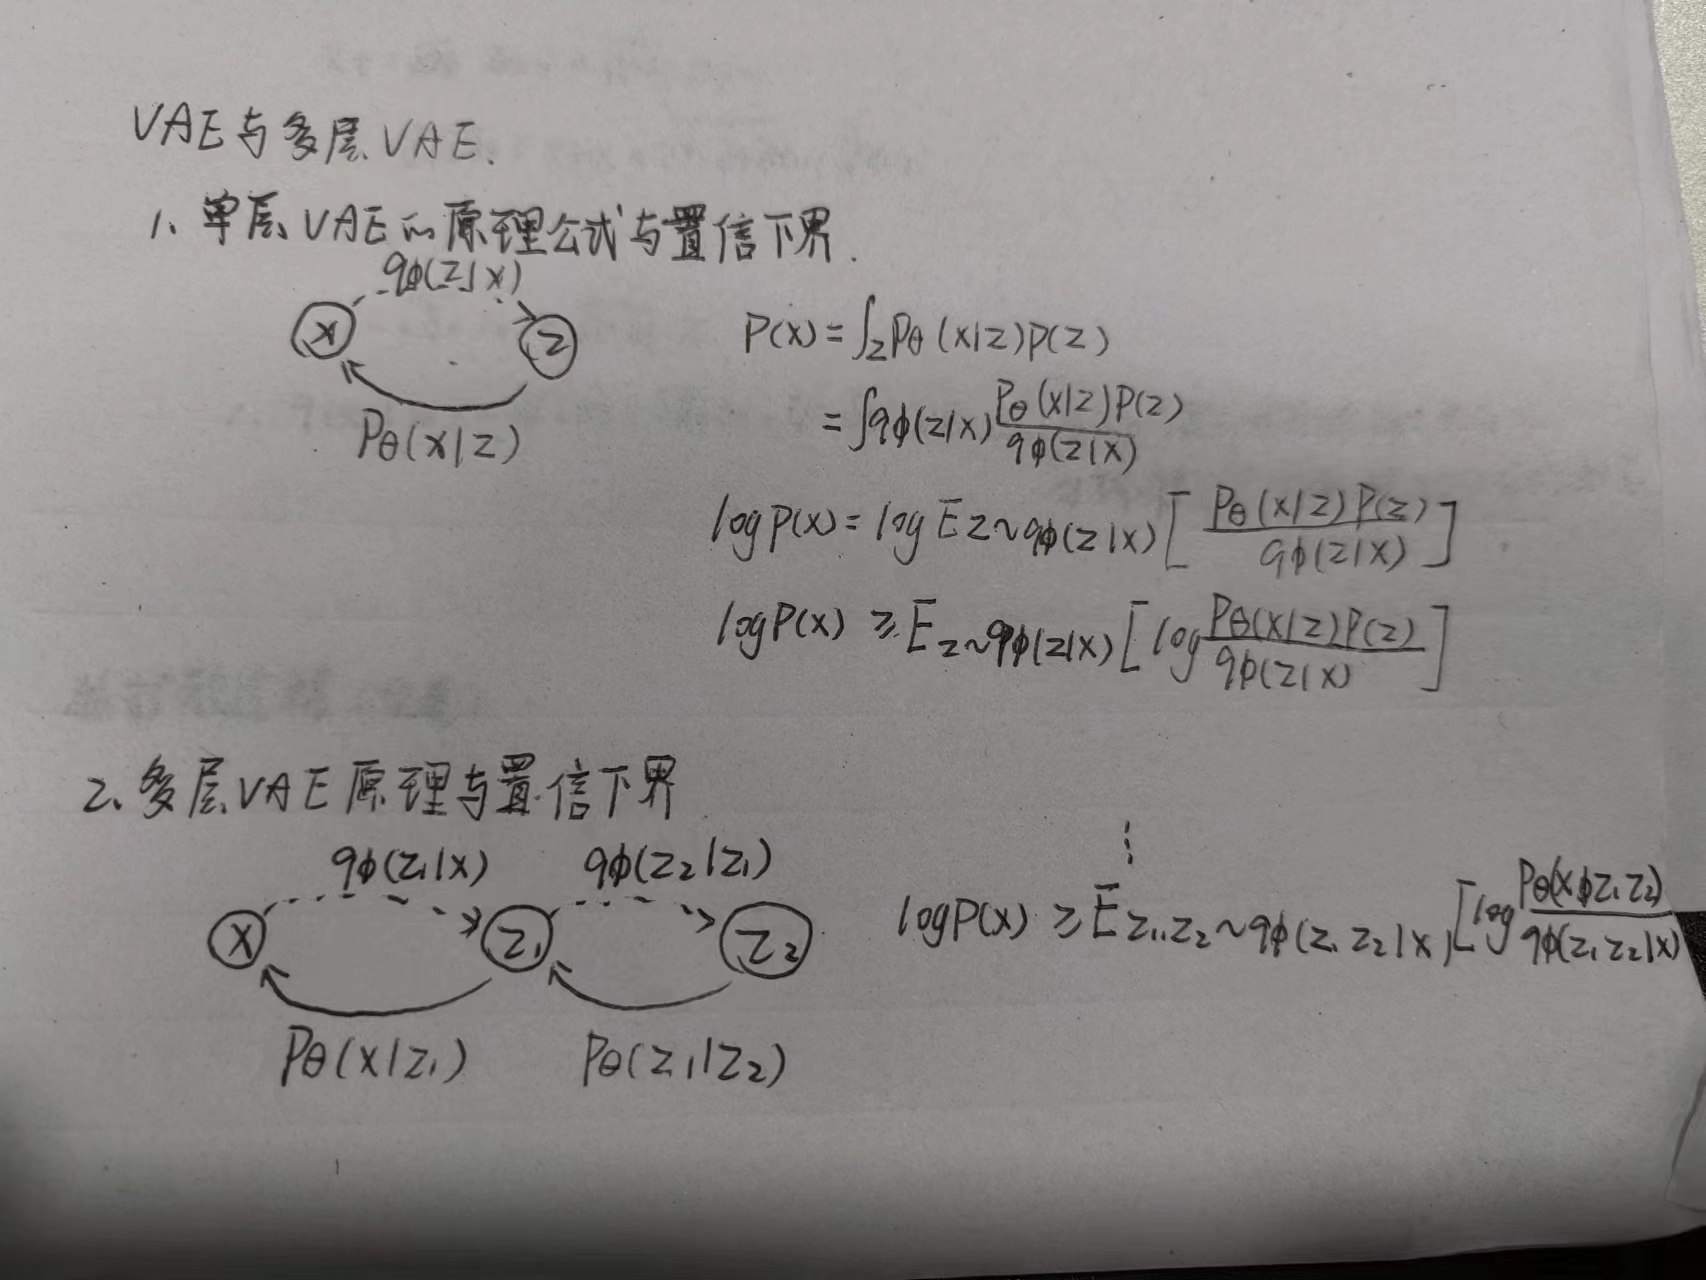 VAE与多层VAE.
1、单层VAE的原理公式与置信下界.
qϕ(z|x)
x
z
Pθ(x|z)
P(x)=∫z Pθ(x|z)P(z)
=∫qϕ(z|x) Pθ(x|z)P(z) / qϕ(z|x)
log P(x) = log E z~qϕ(z|x) [ Pθ(x|z)P(z) / qϕ(z|x) ]
log P(x) ≥ E z~qϕ(z|x) [ log Pθ(x|z)P(z) / qϕ(z|x) ]
2、多层VAE原理与置信下界
qϕ(z₁|x) qϕ(z₂|z₁)
x z₁ z₂
Pθ(x|z₁) Pθ(z₁|z₂)
⋮
log P(x) ≥ E z₁,z₂~qϕ(z₁ z₂|x) [ log Pθ(x z₁ z₂) / qϕ(z₁ z₂|x)